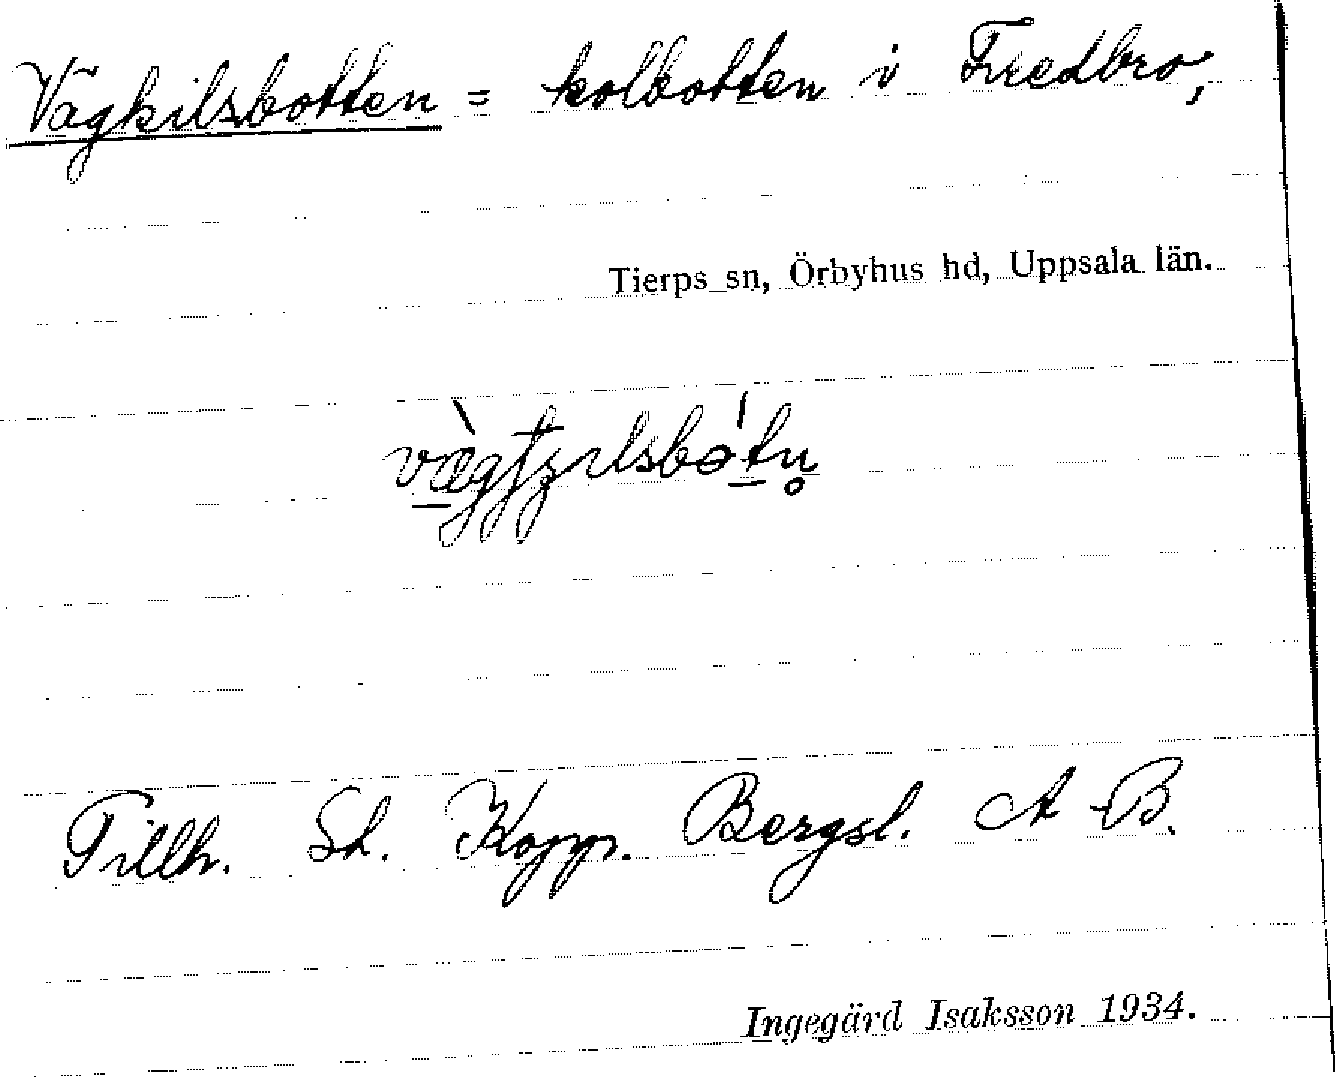 Vägkilsbotten = kolbotten i Fredbro,
Tierps sn, Örbyhus hd, Uppsala län.
Tillh. St. Kopp. Bergsl. A-B.
Ingegärd Isaksson 1934.